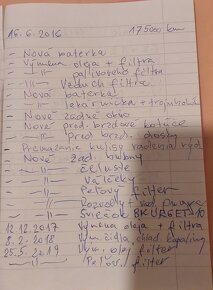 16.6.2016 175000 km
- Nová baterka
- Výměna oleja + filtra
- -||- palivového filtra
- -||- Vzduch filtra
- Nová baterka
- -||- lekárnička + trojuholník
- Nové zadné okno
- Nové pred. brzdové kotúče
- -||- Pred. brzd. dosky
- kulisy radenia rých
- Nové zad. bubny
- -||- čeluste
- -||- Valčeky
- -||- Peľový filter
- -||- Rozvody + vod. Pumpa
- -||- Sviečok BKUR6ET-10
12.12.2017 Výměna oleja + filtra
8.2.2018 Vým. čidla chlad kapaliny
25.5.2019 Vým. olej filter
-||- Peľov. filter